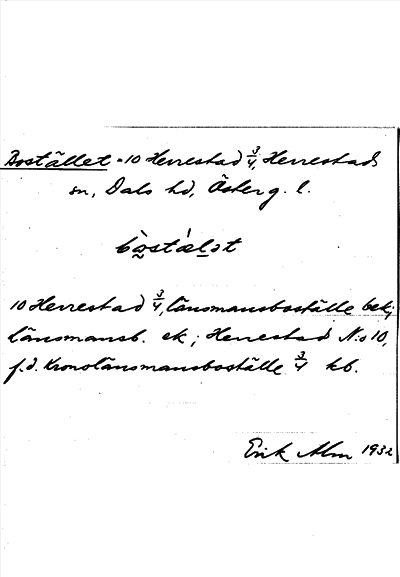 Bostället = 10 Herrestad 3/4, Herrestads
sn, Dals hd, Österg. l.
bòstǽlət
10 Herrestad 3/4, länsmansboställe bek;
länsmansb. ek; Herrestad N:o 10,
f.d. Kronolänsmansboställe 3/4 hb.
Erik Alm 1932